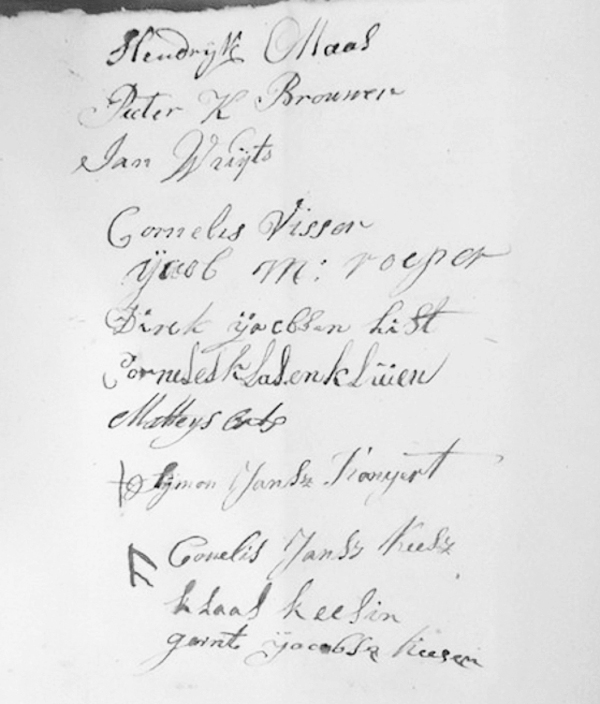 Hendryk Maas
Pieter K Brouwer
Jan Wuijts
Cornelis Visser
ijacob m: roeper
Dirck ijacobsen List
Cornelesklasenkluien
Matteys
Sijmon Jansz
Cornelis Jansz Keesz
klaas keesin
gerrit ijacobsz Keesen